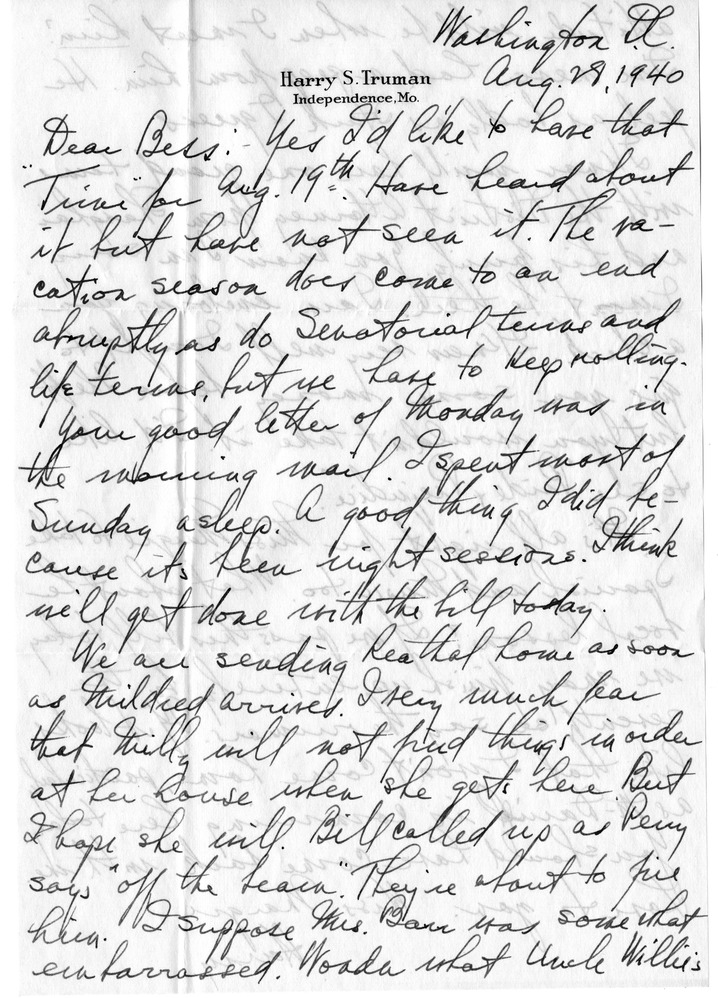 Washington D.C.
Harry S. Truman
Independence, Mo.
Aug. 28, 1940
Dear Bess:- Yes I'd like to have that
"Time" for Aug. 19th. Have heard about
it but have not seen it. The va-
cation season does come to an end
abruptly as do Senatorial terms and
life terms, but we have to keep rolling.
Your good letter of Monday was in
the morning mail. I spent most of
Sunday asleep. A good thing I did be-
cause its been night sessions. I think
we'll get done with the bill today.
We are sending Reathal home as soon
as Mildred arrives. I very much fear
that Milly will not find things in order
at her house when she gets here. But
I hope she will. Bill called up as Perry
says "off the beam". They're about to fire
him. I suppose Mrs. Barr was somewhat
embarrassed. Wonder what Uncle Willie's